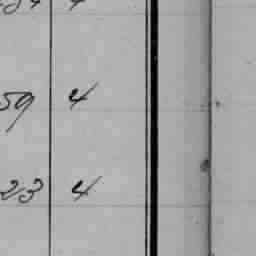 59 4
23 4